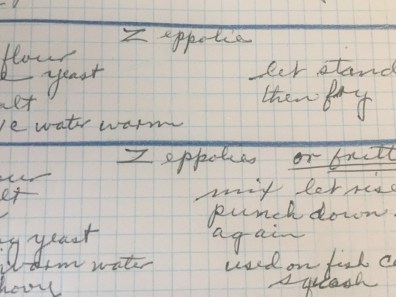 Zeppolie
flour
yeast let stand
alt then fry
water warm
Zeppolies or fritt
mix let rise
lt punch down
yeast again
warm water used on fish
squash